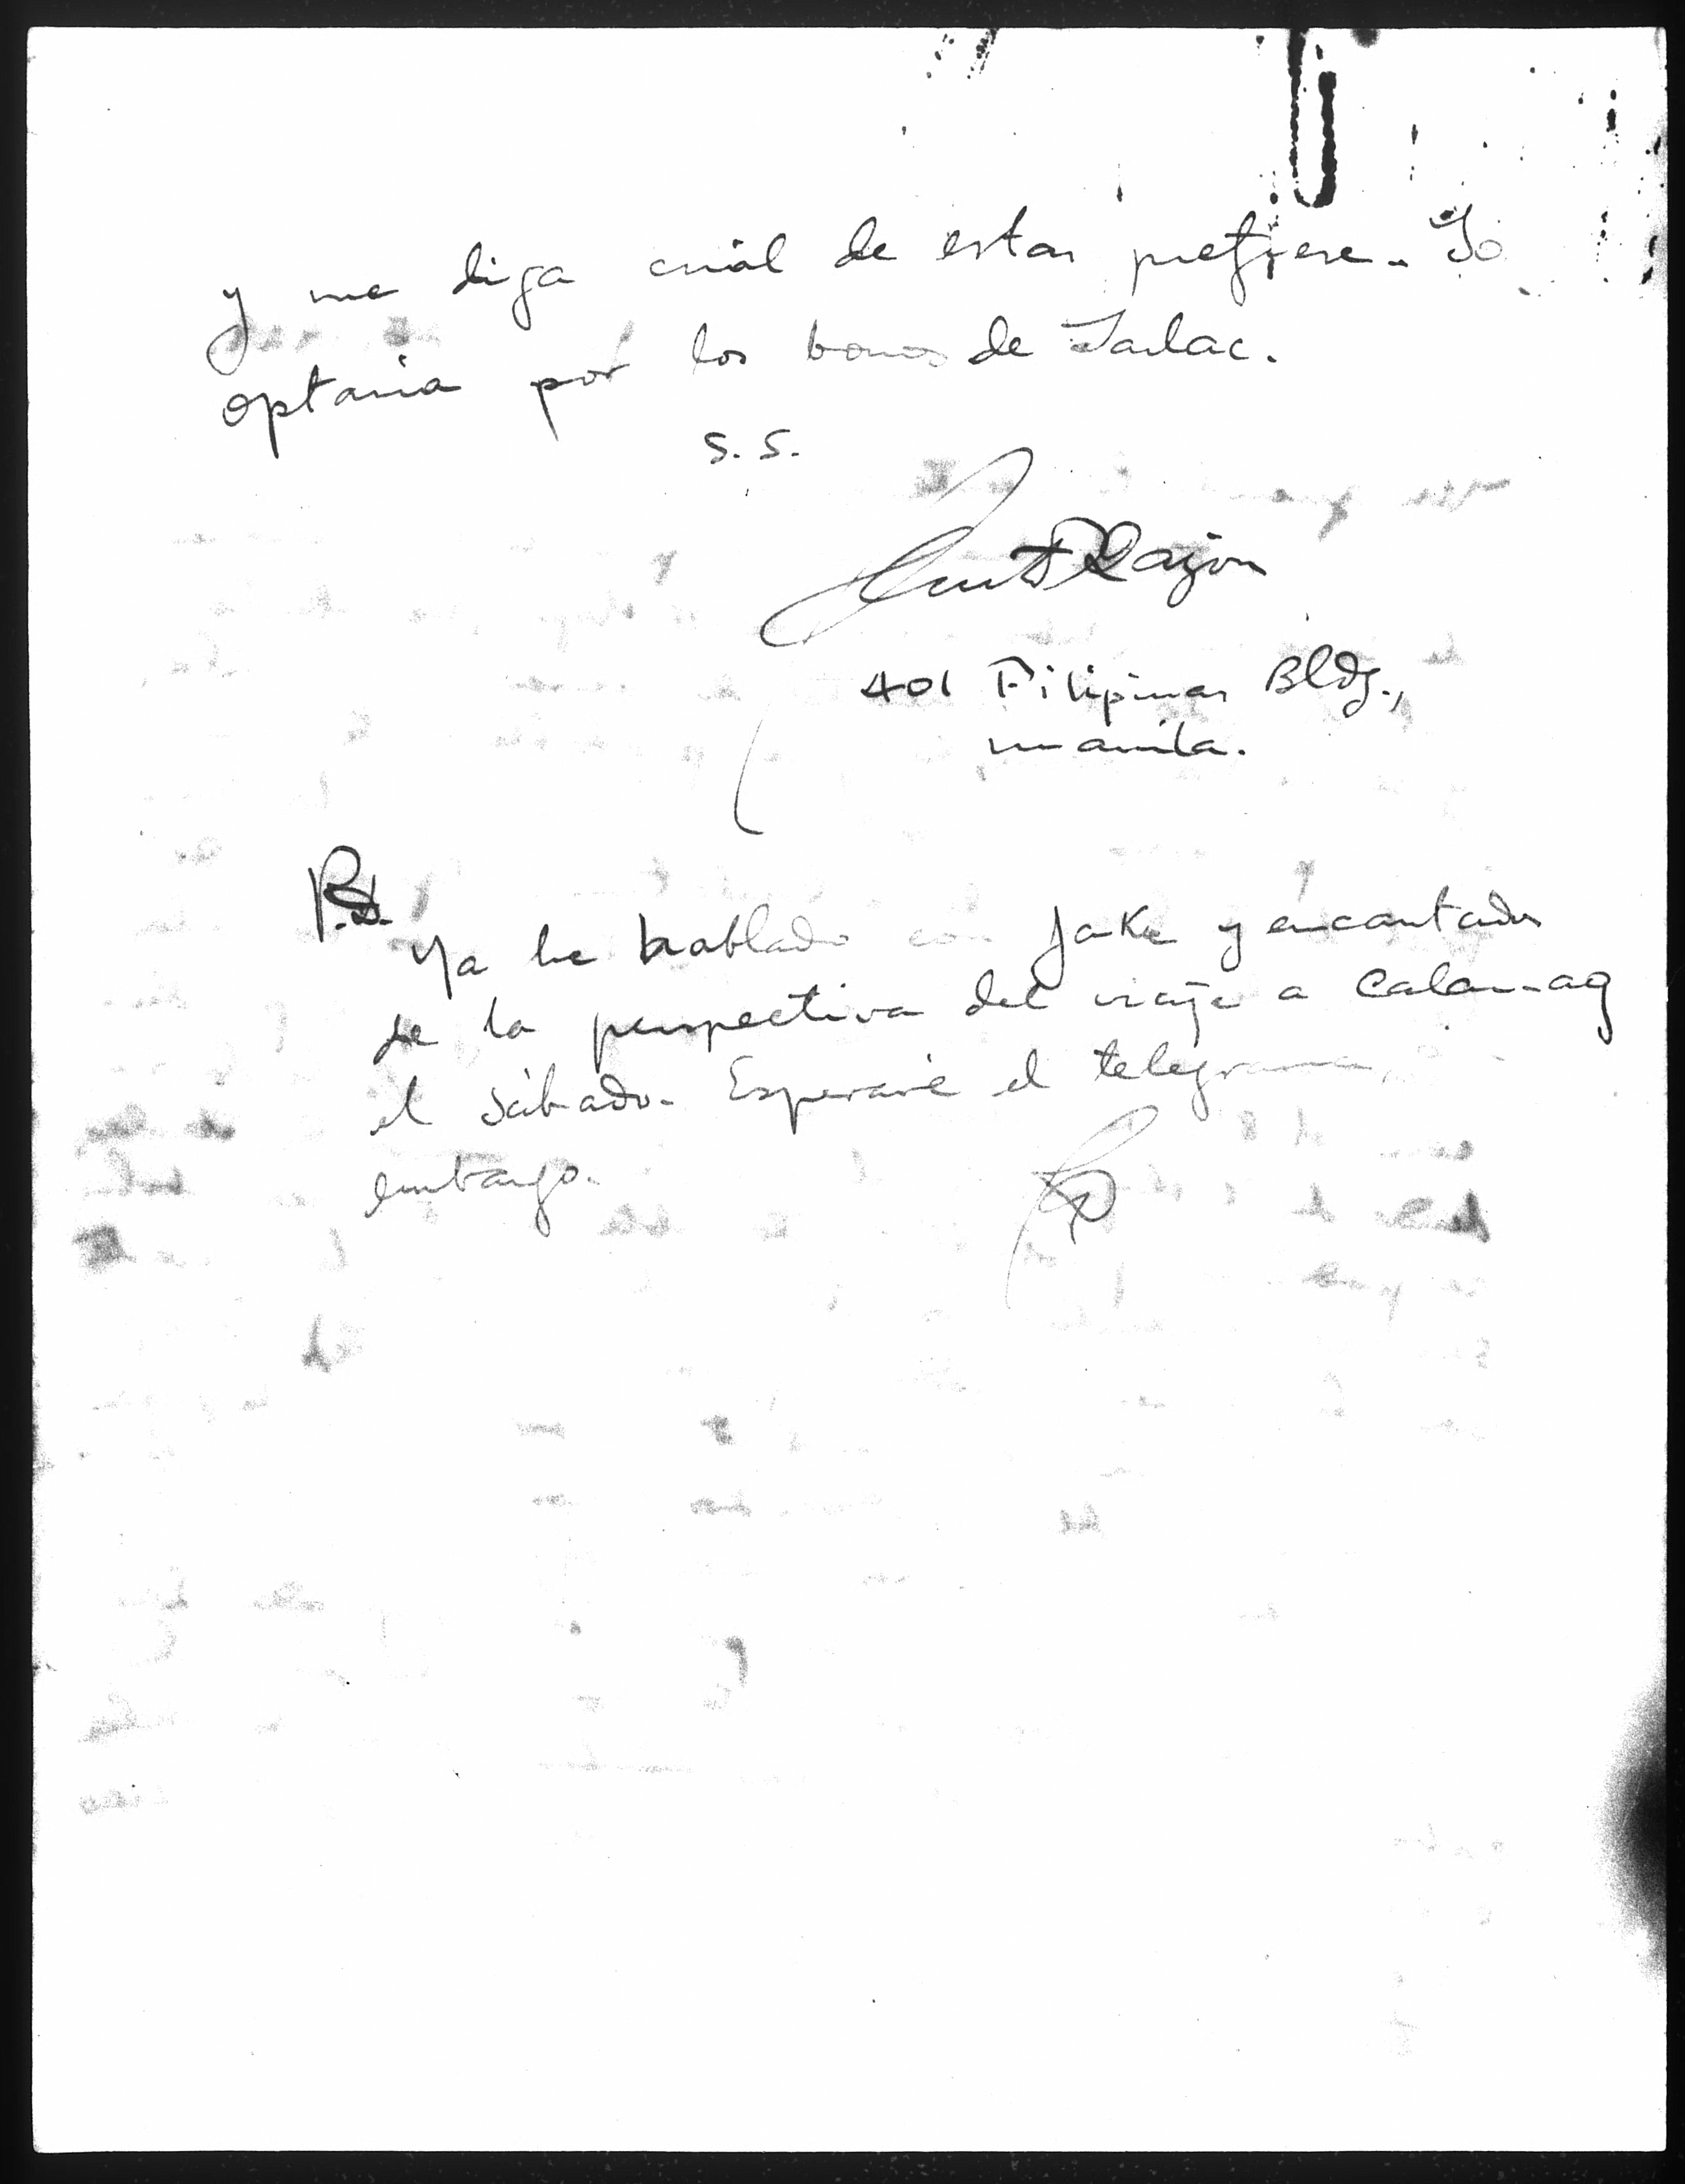 y me diga cuál de estas prefiere. Yo
optaria por los bonos de Tarlac.
S. S.
Razon
401 Filipinas Bldg.,
Manila.
P.D.
Ya he hablado con Jake y encantados
de la perspectiva del viaje a Calauag
el sábado. Esperaré el telegrama,
embargo.